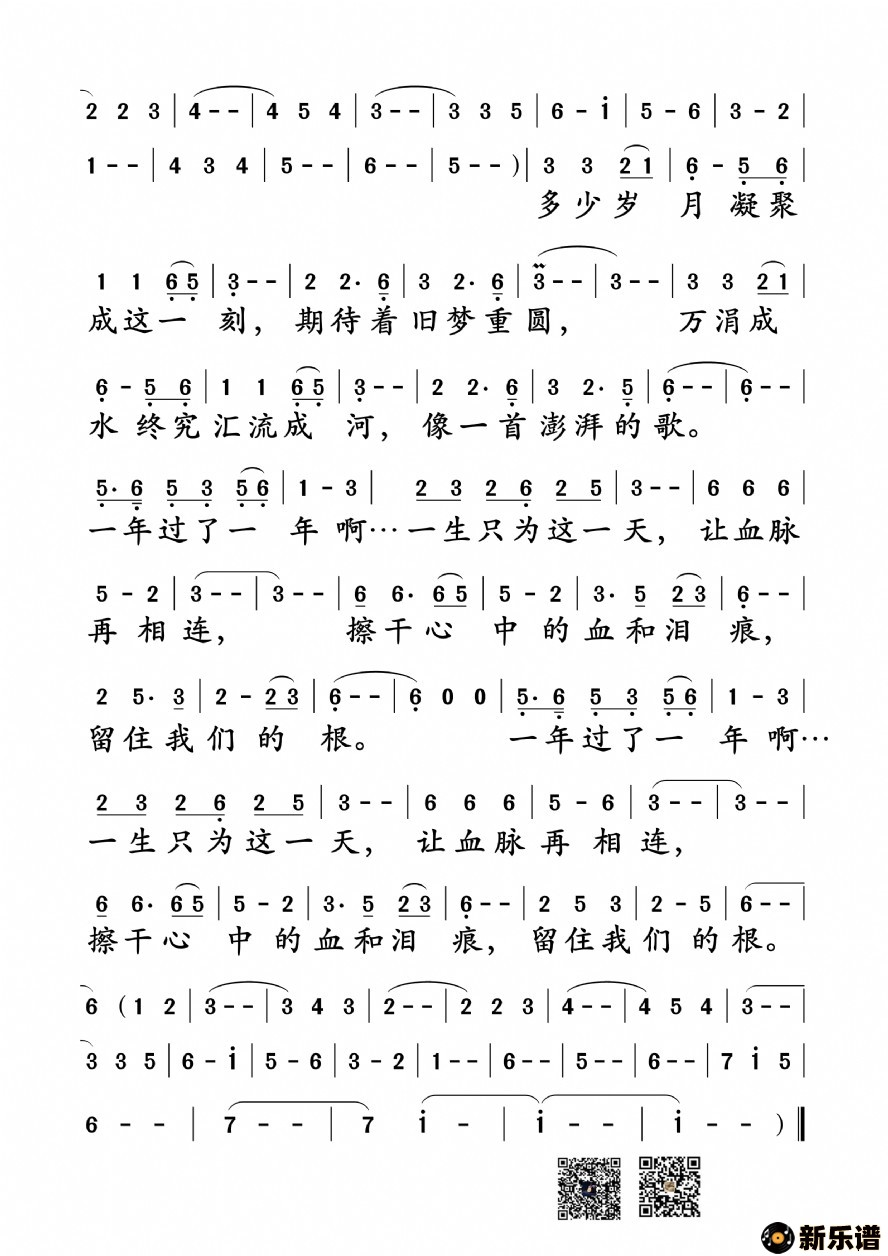 2 2 3 | 4 - - | 4 5 4 | 3 - - | 3 3 5 | 6 - i | 5 - 6 | 3 - 2 |
1 - - | 4 3 4 | 5 - - | 6 - - | 5 - - ) | 3 3 2 1 | 6 - 5 6 |
多少岁 月 凝聚
1 1 6 5 | 3 - - | 2 2· 6 | 3 2· 6 | 3 - - | 3 - - | 3 3 2 1 |
成这一 刻，期待着旧梦重圆， 万涓成
6 - 5 6 | 1 1 6 5 | 3 - - | 2 2· 6 | 3 2· 5 | 6 - - | 6 - - |
水 终究汇流成 河，像一首澎湃的歌。
5· 6 5 3 5 6 | 1 - 3 | 2 3 2 6 2 5 | 3 - - | 6 6 6 |
一年过了一 年 啊…一生只为这一天，让血脉
5 - 2 | 3 - - | 3 - - | 6 6· 6 5 | 5 - 2 | 3· 5 2 3 | 6 - - |
再 相 连， 擦干心 中 的血和泪 痕，
2 5· 3 | 2 - 2 3 | 6 - - | 6 0 0 | 5· 6 5 3 5 6 | 1 - 3 |
留住我们 的 根。 一年过了一 年 啊…
2 3 2 6 2 5 | 3 - - | 6 6 6 | 5 - 6 | 3 - - | 3 - - |
一生只为这一天， 让血脉再 相连，
6 6· 6 5 | 5 - 2 | 3· 5 2 3 | 6 - - | 2 5 3 | 2 - 5 | 6 - - |
擦干心 中 的血和泪 痕，留住我们 的根。
6 ( 1 2 | 3 - - | 3 4 3 | 2 - - | 2 2 3 | 4 - - | 4 5 4 | 3 - - |
3 3 5 | 6 - i | 5 - 6 | 3 - 2 | 1 - - | 6 - - | 5 - - | 6 - - | 7 i 5 |
6 - - | 7 - - | 7 i - | i - - | i - - ) ‖
新乐谱